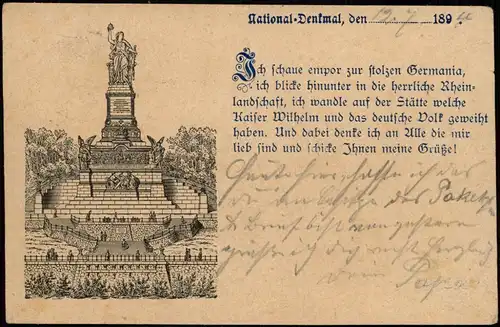 National-Denkmal, den 12.7. 189
Ich schaue empor zur stolzen Germania,
ich blicke hinunter in die herrliche Rhein-
landschaft, ich wandle auf der Stätte welche
Kaiser Wilhelm und das deutsche Volk geweiht
haben. Und dabei denke ich an Alle die mir
lieb sind und schicke Ihnen meine Grüße!
ich das
Paket
von gestern
ich Dich recht herzlich
Dein Papa